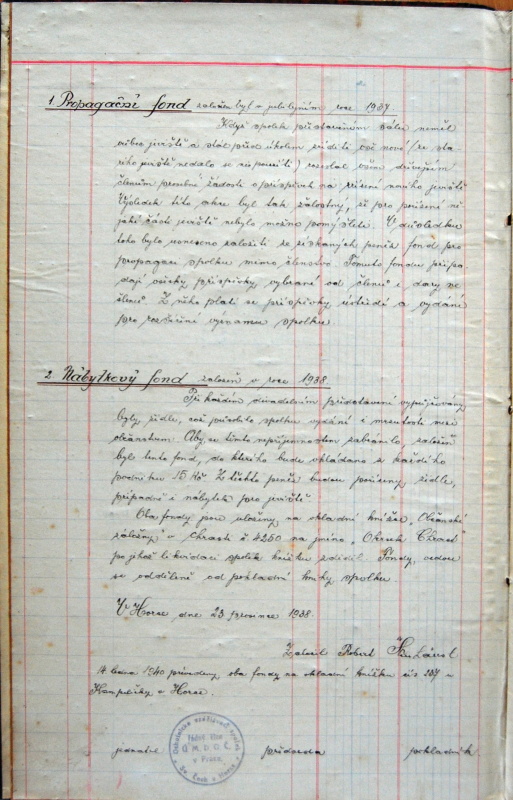 1. Propagační fond založen byl v jubilejním roce 1937.
Když spolek přestavěném sále neměl
vůbec jeviště a stál před úkolem zříditi své nové (ze sta-
rého jeviště nedalo se nic použíti) rozeslal všem dřívějším
členům prosebné žádosti o příspěvek na zřízení nového jeviště
Výsledek této akce byl tak žalostný, že pro pořízení ně-
jaké části jeviště nebylo možno pomýšleti. V důsledku
toho bylo usneseno založiti ze získaných peněz fond pro
propagaci spolku mimo členstvo. Tomuto fondu připa-
dají všecky příspěvky vybrané od členů i dary ne-
členů. Z něho platí se příspěvky ústředí a vydání
pro rozšíření významu spolku.
2. Nábytkový fond založen v roce 1938.
Při každém divadelním představení vypůjčovány
byly židle, což působilo spolku vydání i mrzutosti mezi
občanstvem. Aby se těmto nepříjemnostem zabránilo, založen
byl tento fond, do kterého bude vkládáno z každého
podniku 15 Kč. Z těchto peněz budou pořízeny židle,
případně i nábytek pro jeviště.
Oba fondy jsou uloženy na vkladní knížce „Občanské
záložny" v Chrasti č 4260 na jméno
po jehož likvidaci spolek knížku zdědil. Fondy vedou
se odděleně od pokladní knihy spolku.
V Horce dne 23 prosince 1938.
Založil Robert
14. ledna 1940 převedeny oba fondy na vkladní knížku čís 237 u
Kampeličky v Horce.
jednatel předseda pokladník
Ú. M. D. O. Č.
v Praze